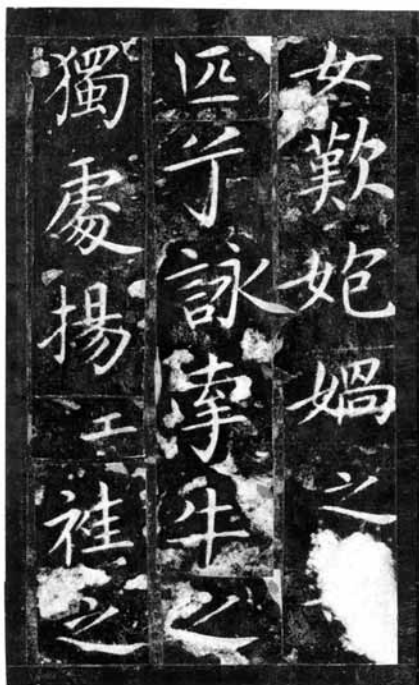 女歎㚿媧之
匹兮詠牽牛之
獨處揚工袿之